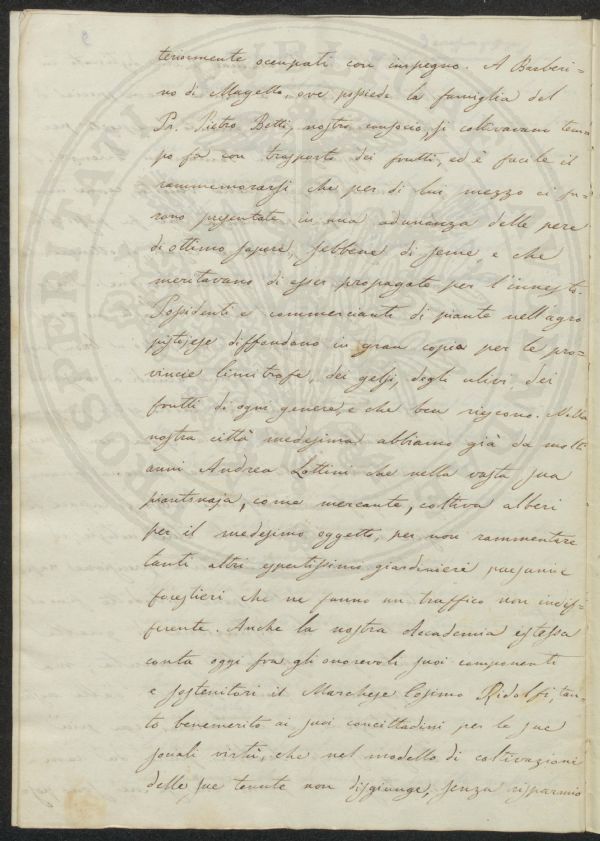 teriormente occupati con impegno. A Barberi-
no di Mugello, ove possiede la famiglia del
Dr. Pietro Betti, nostro consocio, si coltivavano tem-
po fa con trasporto dei frutti, ed è facile il
rammemorarsi che per di lui mezzo ci fu-
rono presentate in una adunanza delle pere
di ottimo sapore, sebbene di seme, e che
meritavano di esser propagate per l'innesto.
Possidenti e commercianti di piante nell'agro
pistojese diffondono in gran copia per le pro-
vincie limitrofe, dei gelsi, degli ulivi, dei
frutti di ogni genere, e che ben riescono. Nella
nostra città medesima abbiamo già da molti
anni Andrea Lottini che nella vasta sua
piantonaja, come mercante, coltiva alberi
per il medesimo oggetto, per non rammentare
tanti altri espertissimi giardinieri paesani e
forestieri che ne fanno un traffico non indif-
ferente. Anche la nostra Accademia istessa
conta oggi fra gli onorevoli suoi componenti
e sostenitori il Marchese Cosimo Ridolfi, tan-
to benemerito ai suoi concittadini per le sue
sociali virtù, che nel modello di coltivazioni
delle sue tenute non disgiunge, senza risparmio
PROSPERITATI PUBLICAE